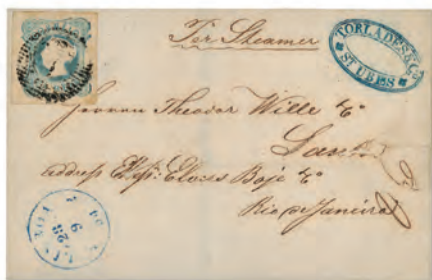 Per Steamer
TORLADES & Co
ST UBES
Herren Theodor Wille & Co
Santos
address Messrs: Elvers Boje & Co
Rio de Janeiro
LISBOA